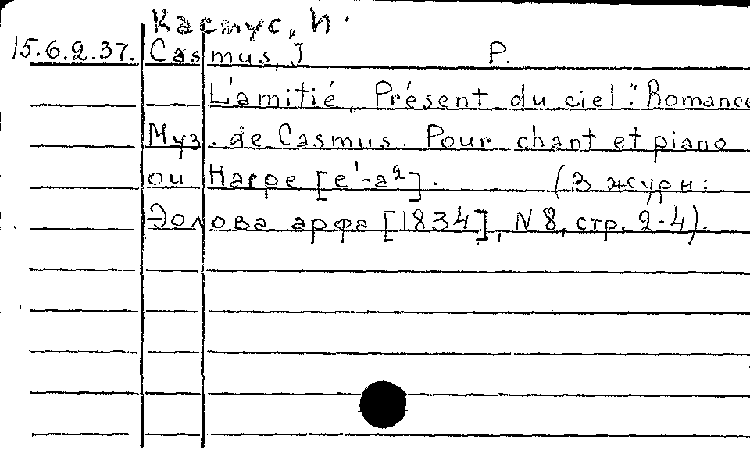 Касмус, И.
15.6.2.37. Casmus, J P.
L'amitié, Présent du ciel: Romance
Муз. de Casmus. Pour chant et piano
ou Harpe [e¹-a²]. (Из журн:
Эолова арфа [1834], N 8, стр. 2-4).